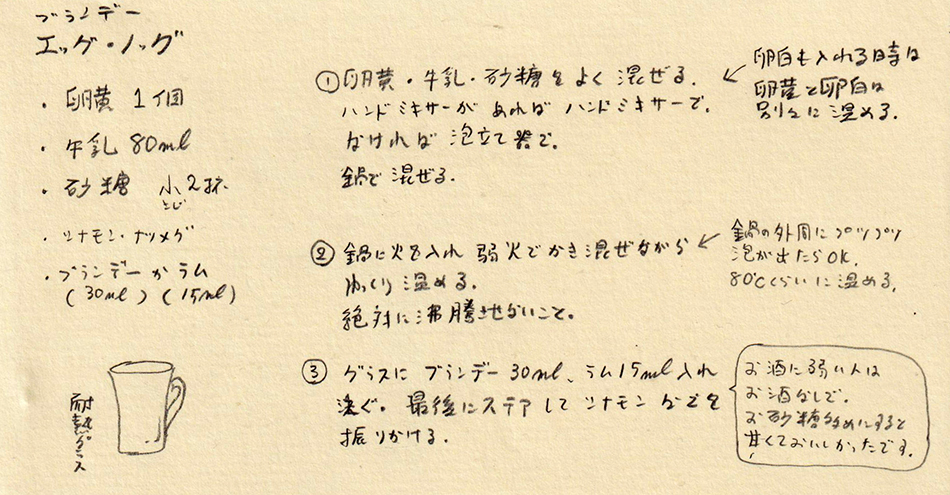 ブランデー
エッグ・ノッグ
・卵黄 1個
・牛乳 80ml
・砂糖 小2杯
とじ
・シナモン・ナツメグ
・ブランデーかラム
(30ml) (15ml)
耐熱グラス
①卵黄・牛乳・砂糖をよく混ぜる。
ハンドミキサーがあればハンドミキサーで。
なければ泡立て器で。
鍋で混ぜる。
←卵白も入れる時は
卵黄と卵白は
別々に温める。
②鍋に火を入れ弱火でかき混ぜながら
ゆっくり温める。
絶対に沸騰させないこと。
←鍋の外周にプツプツ
泡が出たらOK.
80℃くらいに温める。
③グラスにブランデー30ml、ラム15ml入れ
注ぐ。最後にステアしてシナモンなどを
振りかける。
お酒に弱い人は
お酒なしで。
お砂糖多めにすると
甘くておいしかったです。